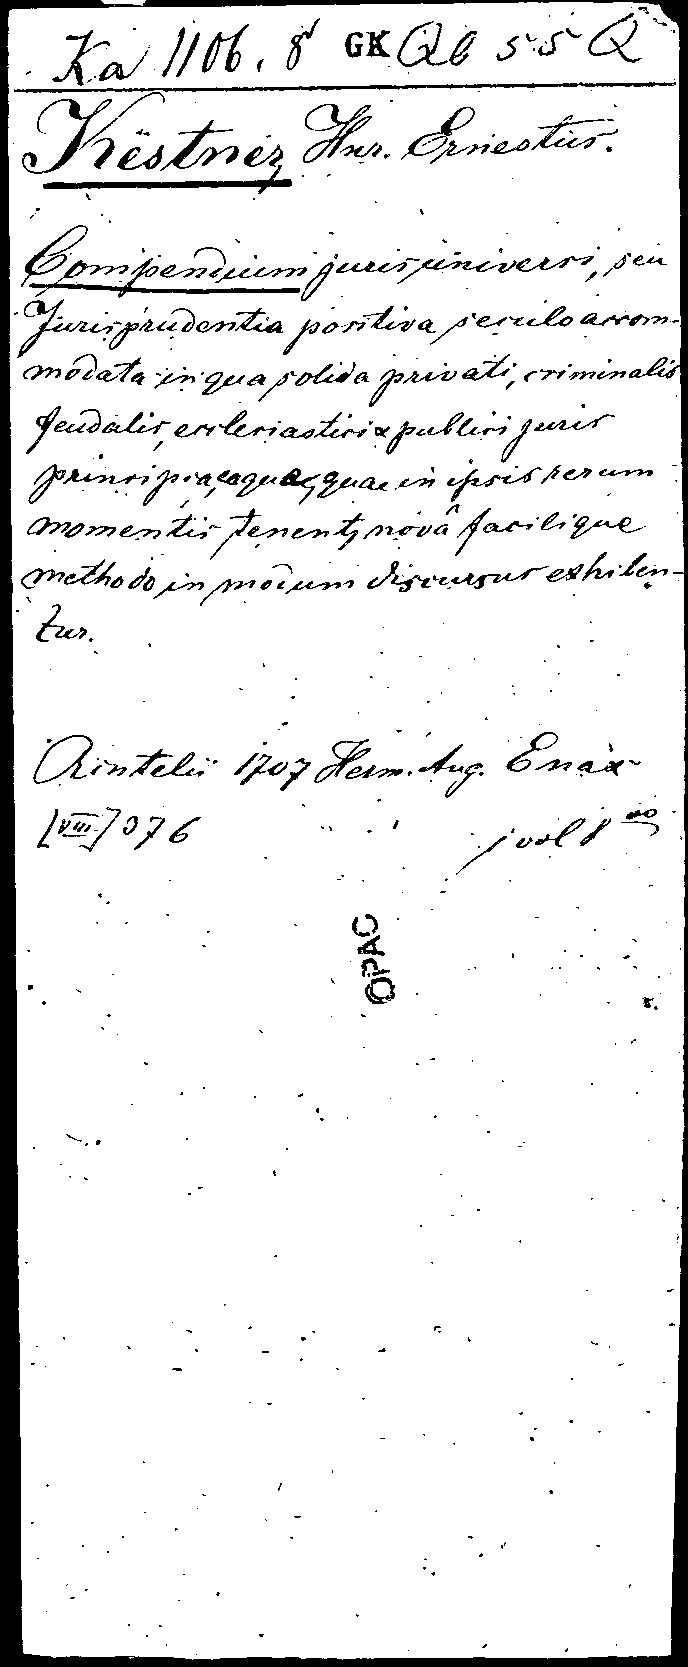 Ka 1106, 8° GK Qb 55 Q
Kestner, Hnr. Ernestus.
Compendium juris universi, seu
Jurisprudentia positiva seculo accom-
modata in qua solida privati, criminalis
feudalis, ecclesiastici & publici juris
principia, eaque, quae in ipsis rerum
momentis tenent, novâ facilique
methodo in modum discursus exhiben-
tur.
Rintelii 1707 Herm. Aug. Enax
[VIII] 376
1 vol 8 vo
OPAC